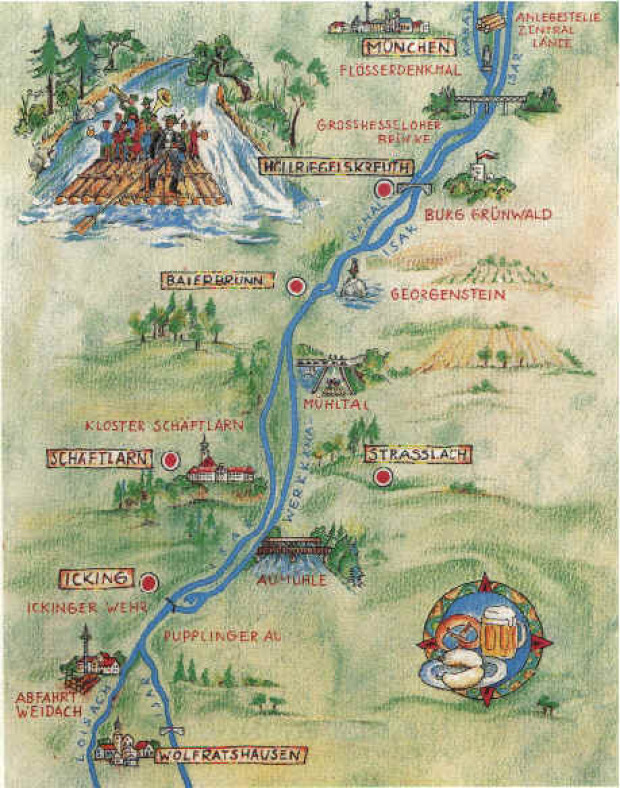 KANAL
ANLEGESTELLE
ZENTRAL
LÄNDE
MÜNCHEN
ISAR
FLÖSSERDENKMAL
GROSSHESSELOHER
BRÜCKE
HÖLLRIEGELSKREUTH
BURG GRÜNWALD
KANAL
ISAR
BAIERBRUNN
GEORGENSTEIN
MÜHLTAL
KLOSTER SCHÄFTLARN
SCHÄFTLARN
STRASSLACH
WERKKANAL
ISAR
AUMÜHLE
ICKING
ICKINGER WEHR
PUPPLINGER AU
ABFAHRT
WEIDACH
LOISACH
ISAR
WOLFRATSHAUSEN